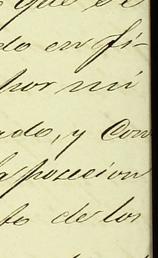 que se
do en fi-
por mi
ado, y Con
la posecion
to de los